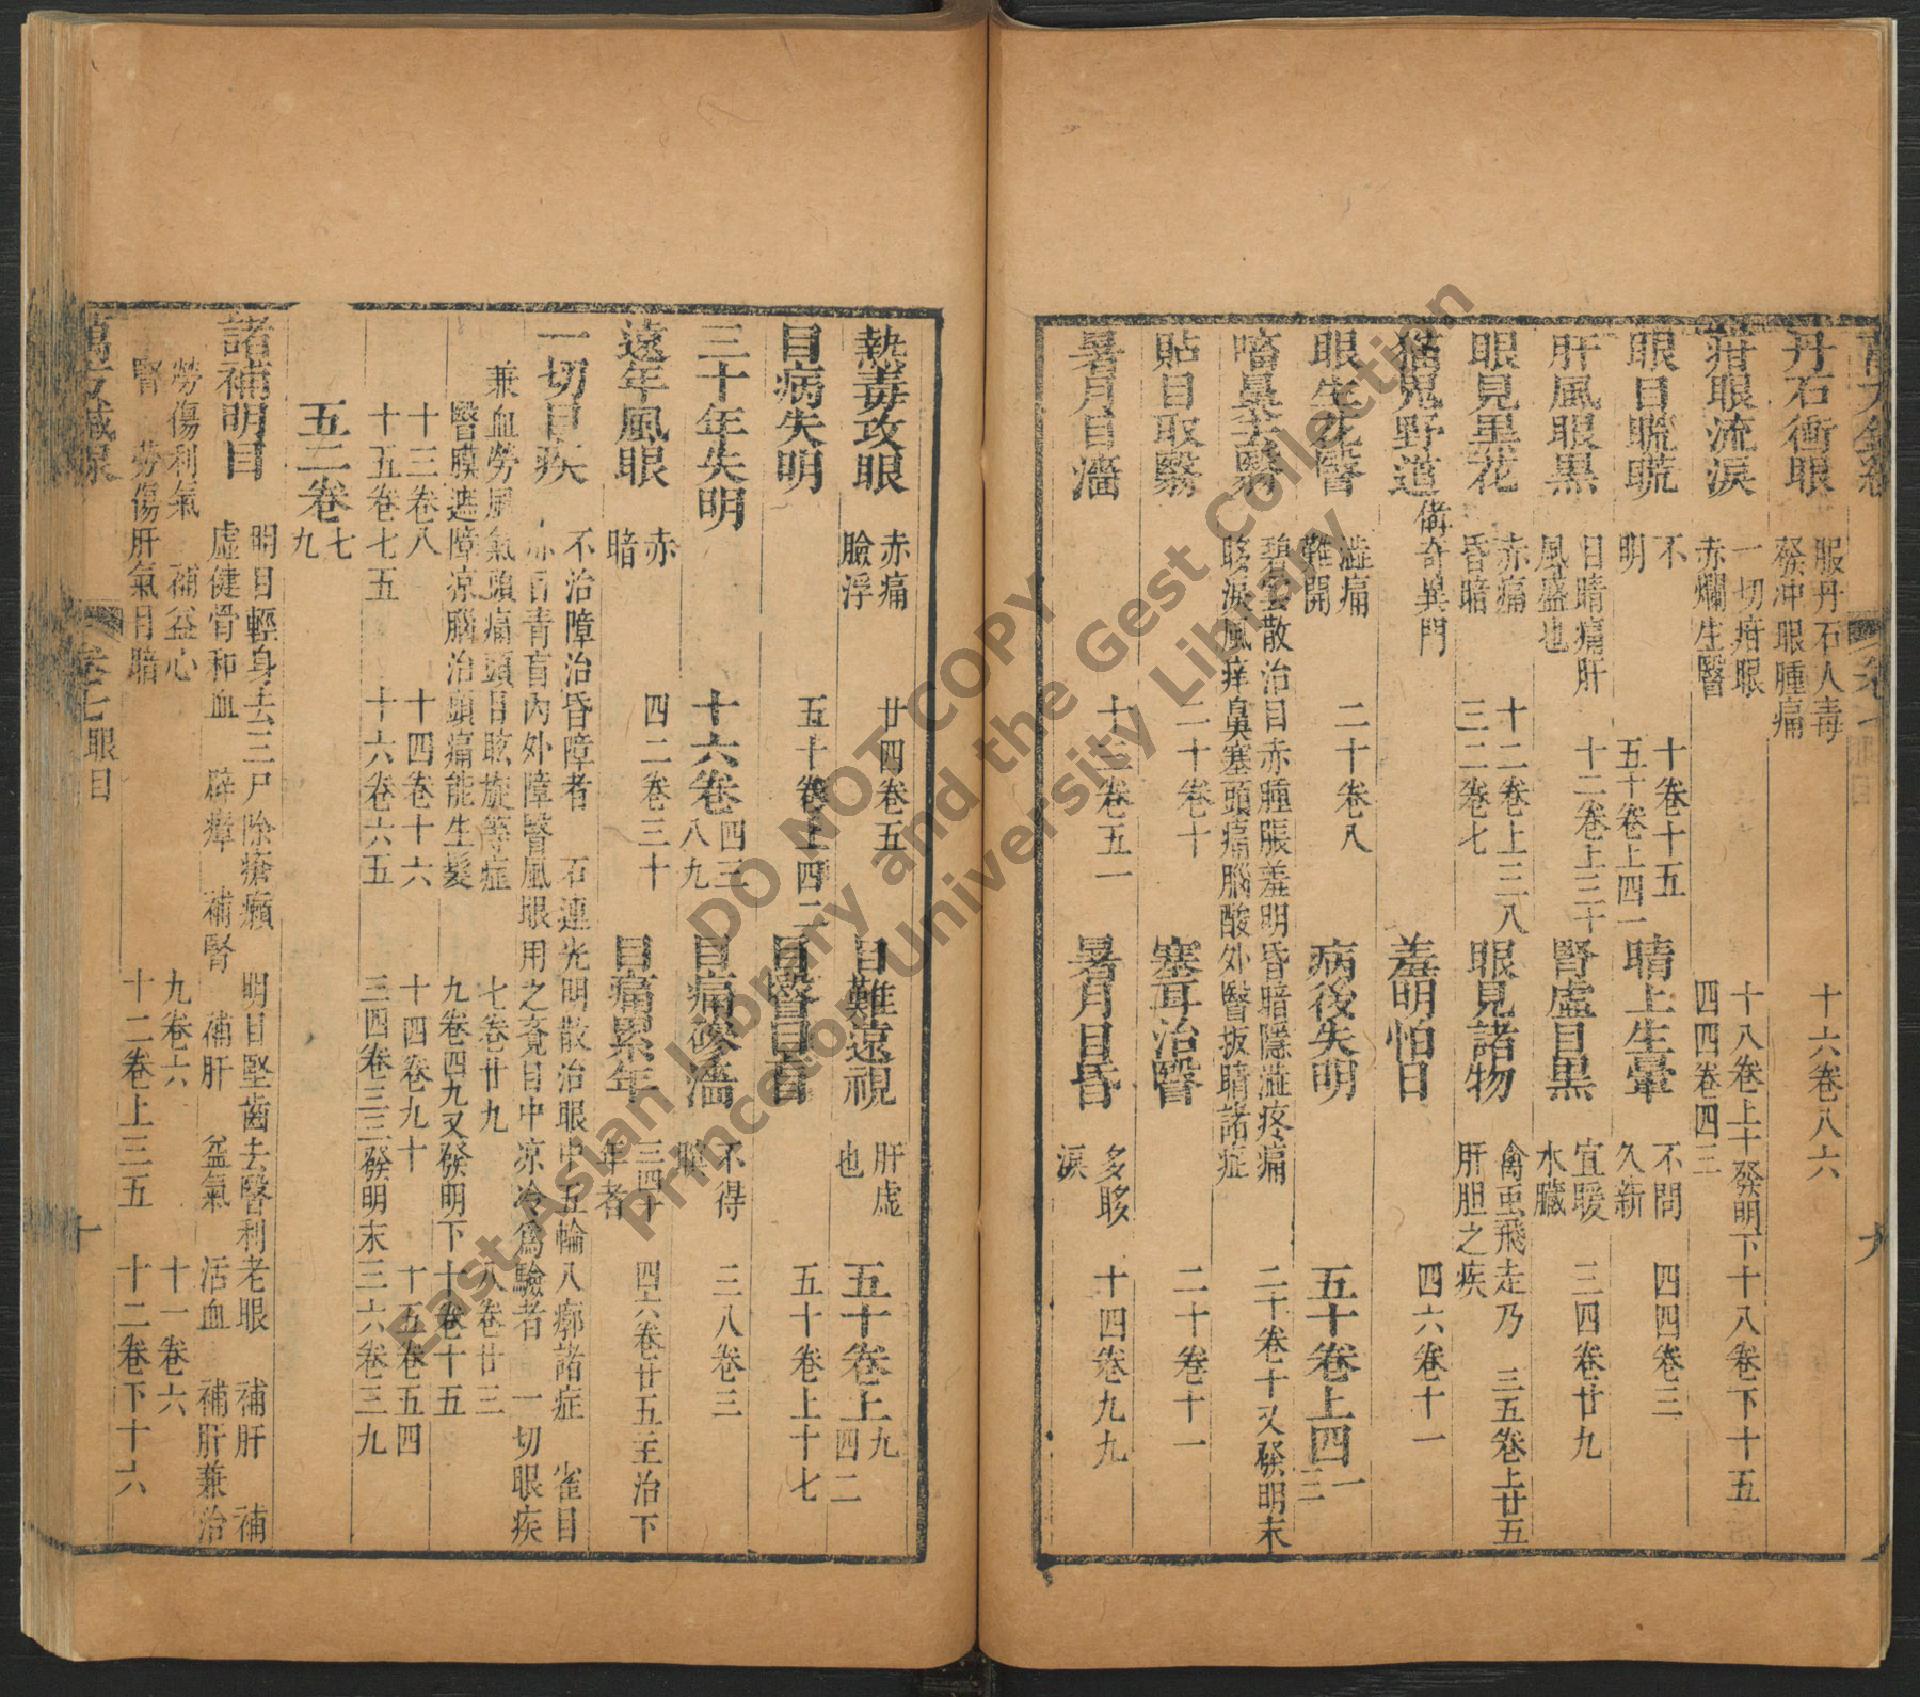 丹石衝眼 服丹石人毒發冲眼腫痛 十六卷八六
疳眼流淚 一切疳眼赤爛生瞖 十八卷上十發明下十八卷下十五 四四卷四三
眼目䀮䀮 不明 十卷十五 五十卷上四一 睛上生暈 不問久新 四四卷三
肝風眼黑 目暗痛肝風盛也 十二卷上三十 腎虛目黑 宜暖水臟 三四卷廿九
眼見黑花 赤痛昏暗 十二卷上三八 三二卷七 眼見諸物 禽虫飛走乃肝胆之疾 三五卷上廿五
猫鬼野道 備奇異門 羞明怕日 四六卷十一
眼生花瞖 澁痛難開 二十卷八 病後失明 五十卷上四一 三
㗜鼻去瞖 碧雲散治目赤腫脹羞明昏暗隱澁疼痛眵淚風痒鼻塞頭痛腦酸外瞖扳睛諸症 二十卷十又發明末
貼目取瞖 二十卷十 塞耳治瞖 二十卷十一
暑月目濇 十三卷五一 暑月目昏 多眵淚 十四卷九九
九
熱毒攻眼 赤痛臉浮 廿四卷五 目難遠視 肝虚也 五十卷上九 四二
目病失明 五十卷上四二 目瞖目盲 五十卷上十七
三十年失明 十六卷四三 八九 目痛磣濇 不得瞑 三八卷三
遠年風眼 赤暗 四二卷三十 目痛累年 三四十年者 四六卷廿五主治下
一切目疾 不治障治昏障者 石連光明散治眼中五輪八廓諸症 雀目赤目青盲內外障瞖風眼用之竟目中凉冷爲驗者 一切眼疾
兼血勞風氣頭痛頭目眩旋等症 七卷廿九 八卷廿三
瞖膜遮障凉腦治頭痛能生髮 九卷四九又發明下 十卷十五
十三卷八 十四卷十六 十四卷九十 十五卷五四
十五卷七五 十六卷六五 三四卷三三發明末 三六卷三九
五二卷七 九
諸補明目 明目輕身去三尸除瘡癩 明目堅齒去瞖利老眼 補肝 補虛健骨和血 辟瘴 補腎 補肝 益氣 活血 補肝兼治
勞傷利氣 補益心 九卷六 十一卷六
腎 勞傷肝氣目暗 十二卷上三五 十二卷下十六
萬方鍼線 卷七眼目 十